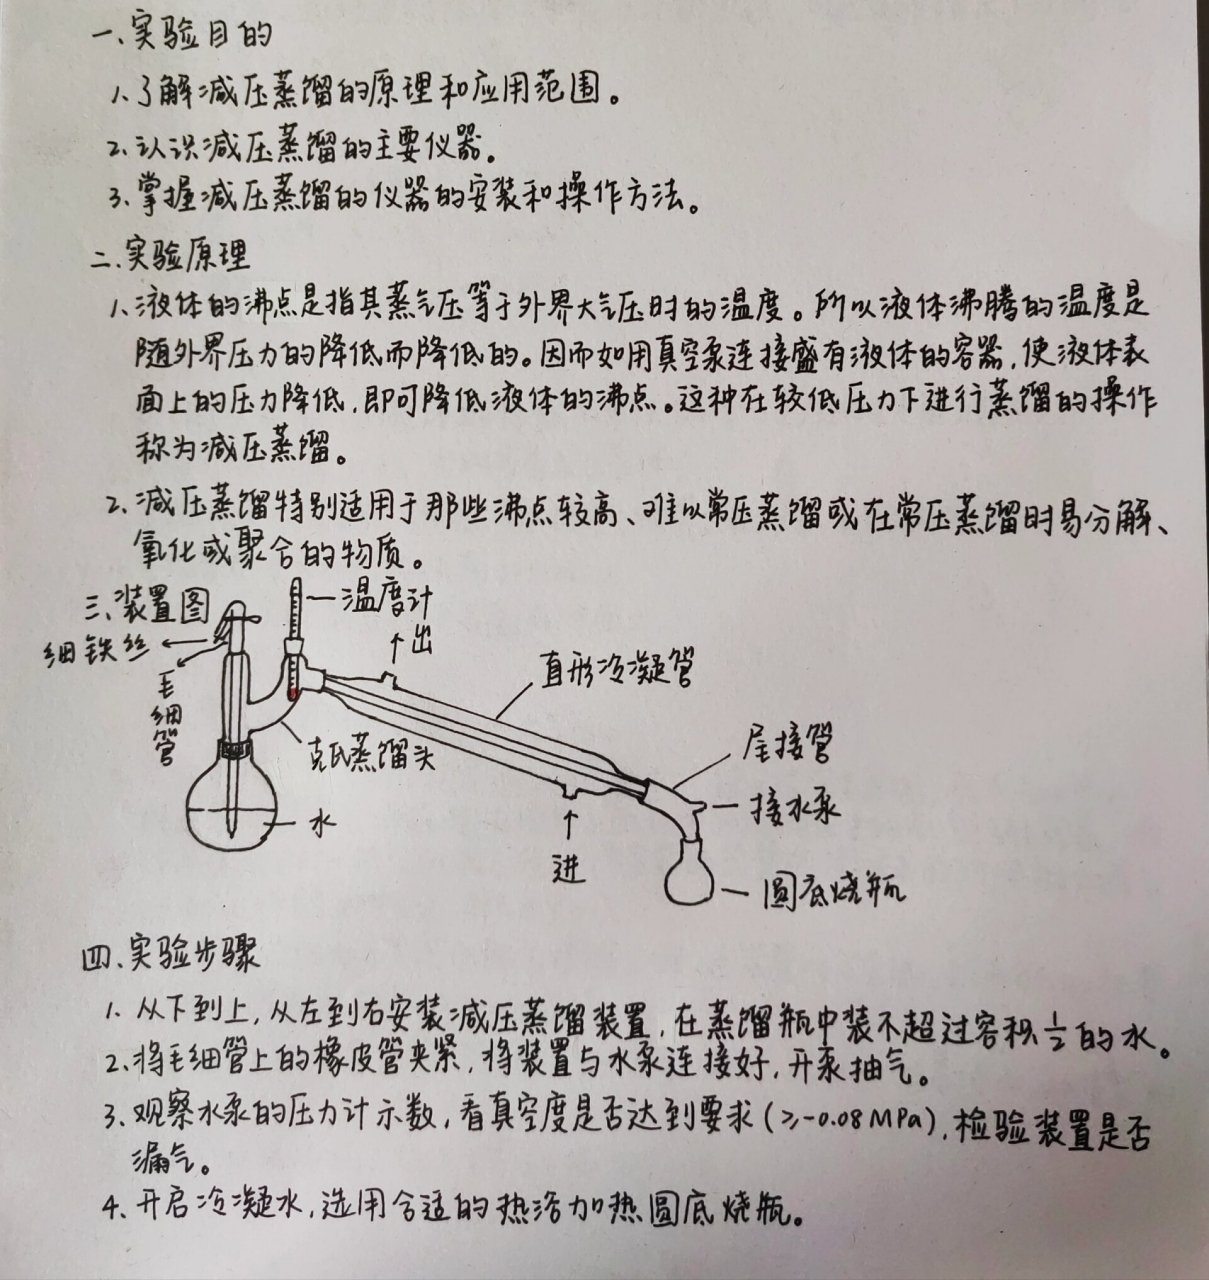 一、实验目的
1、了解减压蒸馏的原理和应用范围。
2、认识减压蒸馏的主要仪器。
3、掌握减压蒸馏的仪器的安装和操作方法。
二、实验原理
1、液体的沸点是指其蒸气压等于外界大气压时的温度。所以液体沸腾的温度是
随外界压力的降低而降低的。因而如用真空泵连接盛有液体的容器,使液体表
面上的压力降低,即可降低液体的沸点。这种在较低压力下进行蒸馏的操作
称为减压蒸馏。
2、减压蒸馏特别适用于那些沸点较高、难以常压蒸馏或在常压蒸馏时易分解、
氧化或聚合的物质。
三、装置图
温度计
细铁丝
出
毛细管
直形冷凝管
克氏蒸馏头
尾接管
接水泵
水
进
圆底烧瓶
四、实验步骤
1、从下到上,从左到右安装减压蒸馏装置,在蒸馏瓶中装不超过容积1/2的水。
2、将毛细管上的橡皮管夹紧,将装置与水泵连接好,开泵抽气。
3、观察水泵的压力计示数,看真空度是否达到要求(≥-0.08MPa),检验装置是否
漏气。
4、开启冷凝水,选用合适的热浴加热圆底烧瓶。